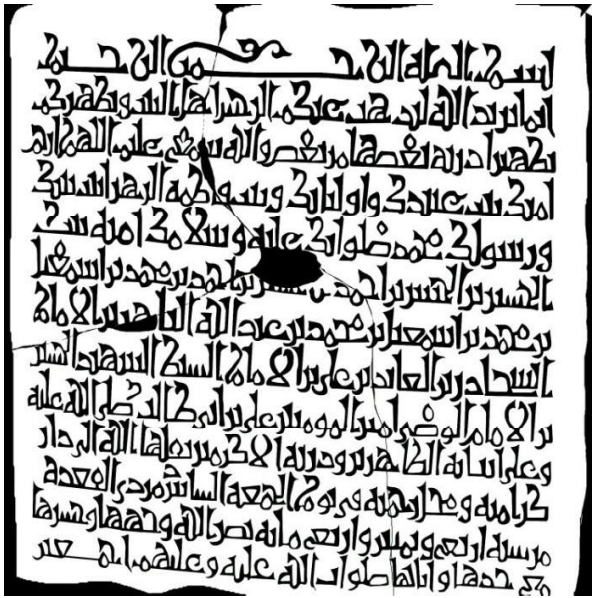 بسم الله الرحمن الرحيم
انما يريد الله ليذهب عنكم الرجس اهل البيت ويطهركم
تطهيرا ذرية بعضها من بعض والله سميع عليم اللهم ارحم
امتك بنت عبيدك واوليائك وبنت فاطمة الزهرا بنت نبيك
ورسولك محمد صلواتك عليه وسلامك امنة بنت
الحسين بن الحسن بن احمد بن احمد بن محمد بن اسمعيل
بن محمد بن اسمعيل بن محمد بن عبد الله الباهر بن الامام
السجاد زين العابدين علي بن الامام السبط الشهيد الحسين
بن الامام الوصي امير المومنين علي بن ابي طالب صلى الله عليه
وعلى ابنائه الطاهرين وذريته الاكرمين نقلها الله الى دار
كرامته ومحل رحمته في يوم الجمعة السادس من ذي القعدة
من سنة اربع وثمنين واربع مائة نضر الله وجهها وحشرها
مع جدها وابائها صلوات الله عليه وعليهم اجمعين